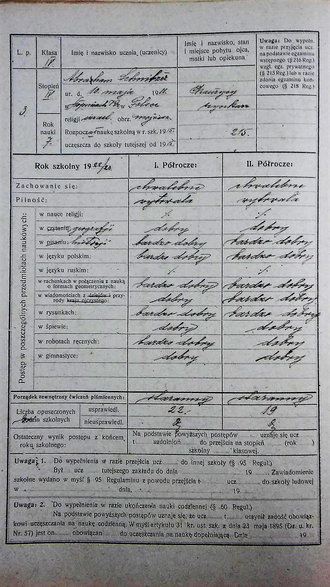 L. p.
Klasa
IV
Stopień
IV
Rok
nauki
7.
3.
Imię i nazwisko ucznia, (uczenicy)
Abraham
ur. d. 10 maja
w Polsce
religii obrz. mojżesz.
Rozpoczął naukę szkolną w r. szk. 19
uczęszcza do szkoły tutejszej od 19
Imię i nazwisko, stan
i miejsce pobytu ojca,
matki lub opiekuna
215
Uwaga: Do wypełn.
w razie przyjęcia ucz.
na podstawie egzaminu
wstępnego (§ 215 Reg.)
wzgl. egz. prywatnego
(§ 218 Reg.) lub w razie
zdania egzaminu koń-
cowego (§ 216 Reg.)
Rok szkolny 1922/23
I. Półrocze:
II. Półrocze:
Zachowanie się:
chwalebne
chwalebne
Pilność:
wytrwała
wytrwała
Postęp w poszczególnych przedmiotach naukowych:
w nauce religji:
w czytaniu, geografji
dobry
dobry
w pisaniu, historji
bardzo dobry
bardzo dobry
w języku polskim:
bardzo dobry
bardzo dobry
w języku ruskim:
w rachunkach w połączeniu z nauką
o formach geometrycznych:
bardzo dobry
bardzo dobry
w wiadomościach z dziejów i przy-
rody kraju ojczystego:
dobry
dobry
w rysunkach:
bardzo dobry
bardzo dobry
w śpiewie:
dobry
dobry
w robotach ręcznych:
bardzo dobry
bardzo dobry
w gimnastyce:
dobry
dobry
Porządek zewnętrzny ćwiczeń piśmiennych:
staranny
staranny
Liczba opuszczonych
godzin szkolnych
usprawiedl.
22
19
nieusprawiedl.
Ostateczny wynik postępu z końcem
roku szkolnego:
Na podstawie powyższych postępów uznaje się ucz
uzdolnion do przejścia na stopień ( rok)
szkolny klasowej.
Uwaga: 1. Do wypełnienia w razie przejścia ucz do innej szkoły (§ 95 Regul.)
Był ucz tutejszego zakładu do dnia 19 Zawiadomienie
szkolne wydano w myśl § 95. Regulaminu z powodu przejścia t ucz do szkoły ludowej
w dnia 19
Uwaga: 2. Do wypełnienia w razie ukończenia nauki codziennej (§ 60 Regul.)
Na podstawie powyższych postępów uznaje się, że ucz uczynił zadość obowiąz-
kowi uczęszczania na naukę codzienną. W myśl artykułu 31 ust. szk. z dnia 23 maja 1895 (Dz. u. kr.
Nr. 57) jest on obowiązan do uczęszczania na naukę dopełniającą. Dnia 19